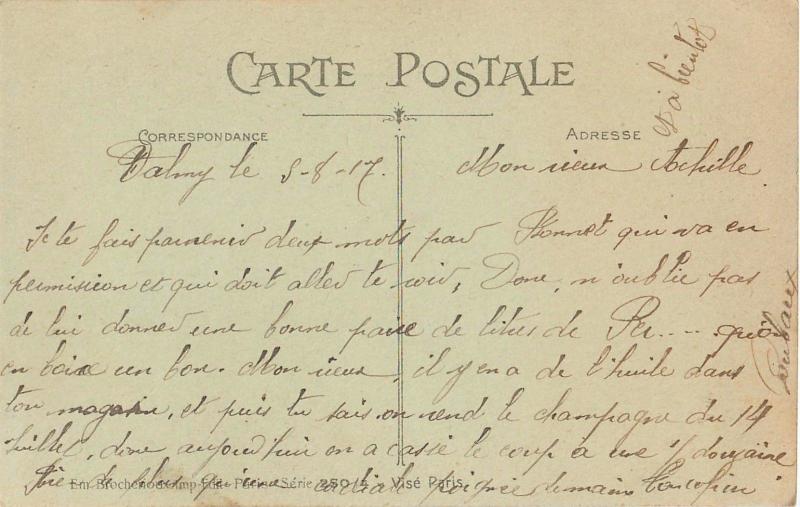 CARTE POSTALE
CORRESPONDANCE
ADRESSE
Valmy le 5-8-17.
Mon vieux Achille
Je te fais parvenir deux mots par Bonnet qui va en
permission et qui doit aller te voir, Donc, n'oublie pas
de lui donner une bonne paire de litres de Per.... qu'on
en boive un bon. Mon vieux, il y en a de l'huile dans
ton magasin, et puis tu sais on vend le champagne du 14
Juillet, donc aujourd'hui on a cassé le coup a une 1/2 douzaine
de plus qu'une cordiale poignée de mains
Em Brocherioux Imp-Edit Paris - Série 250 - Visé Paris
Et à bientôt